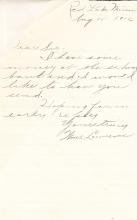 Red Lake Minn
Aug 10 1916
Dear Sir.
I have some
money at the school
bank and I would
like to have you
send.
Hoping for an
early reply
Yours truly